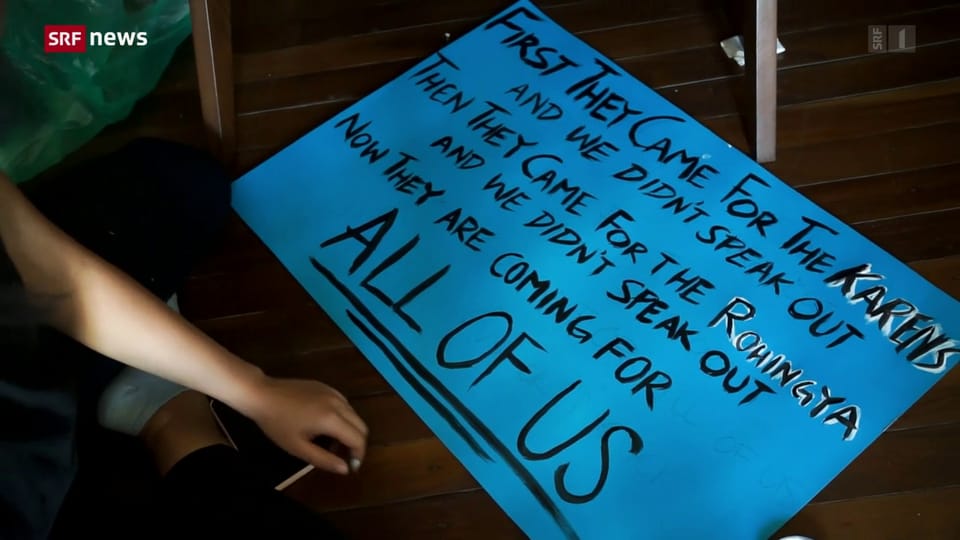 SRF news
SRF 1
FIRST THEY CAME FOR THE KARENS
AND WE DIDN'T SPEAK OUT
THEN THEY CAME FOR THE ROHINGYA
AND WE DIDN'T SPEAK OUT
NOW THEY ARE COMING FOR
ALL OF US